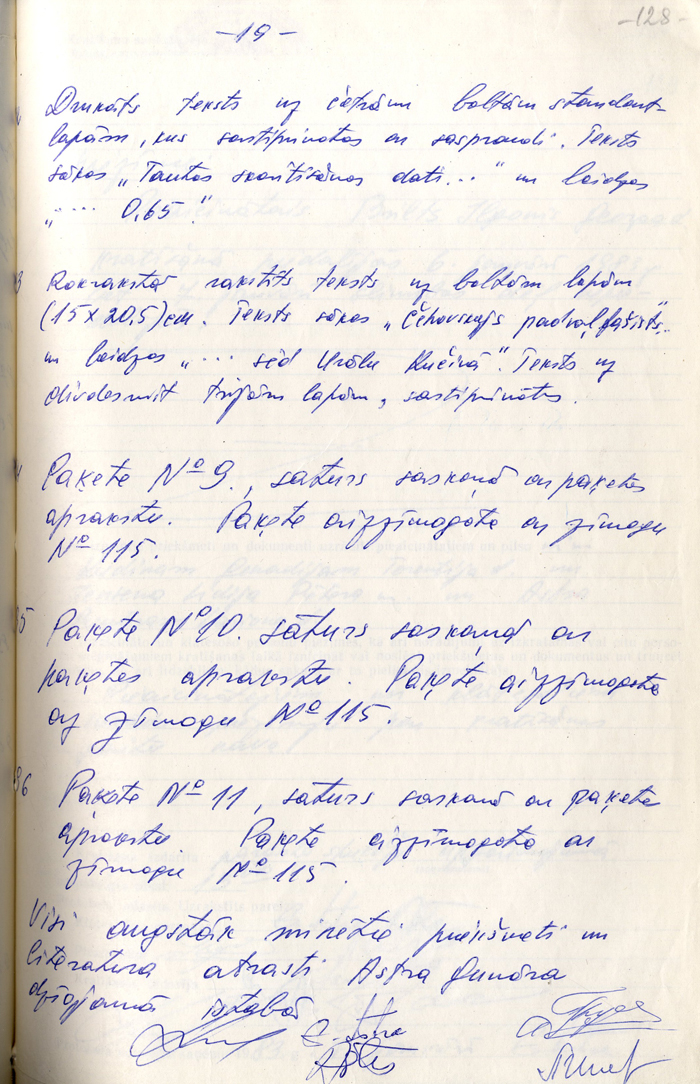 -128-
-19-
Drukāts teksts uz četrām baltām standart-
lapām, kas sastiprinātas ar saspraudi. Teksts
sākas „Tautas skaitīšanas dati..." un beidzas
„.... 0,65".
Rokrakstā rakstīts teksts uz baltām lapām
(15x20,5)cm. Teksts sākas „Čehovskojs fašists..
un beidzas „.... sēd Urālu". Teksts uz
divdesmit trijām lapām, sastiprinātas.
Paķete Nº 9., saturs saskaņā ar paķetes
aprakstu. Paķete aizzīmogota ar zīmogu
Nº 115.
95 Paķete Nº10. saturs saskaņā ar
paķetes aprakstu. Paķete aizzīmogota
ar zīmogu Nº 115.
96 Paķete Nº 11, saturs saskaņā ar paķetes
aprakstu. Paķete aizzīmogota ar
zīmogu Nº 115.
Visi augstāk minētie priekšmeti un
literatura atrasti Astra Gunāra
dzīvojamā istabā